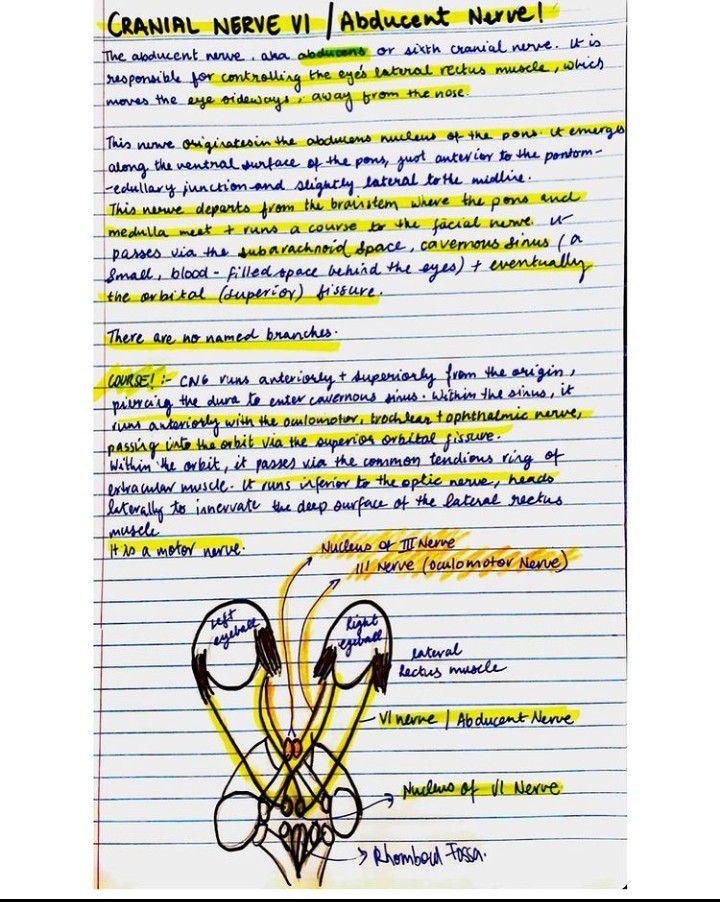 CRANIAL NERVE VI / Abducent Nerve!
The abducent nerve, aka abducens or sixth cranial nerve. It is
responsible for controlling the eye's lateral rectus muscle, which
moves the eye sideways, away from the nose.
This nerve originates in the abducens nucleus of the pons. It emerges
along the ventral surface of the pons, just anterior to the pontom-
-edullary junction and slightly lateral to the midline.
This nerve departs from the brainstem where the pons and
medulla meet + runs a course to the facial nerve. It
passes via the subarachnoid space, cavernous sinus (a
small, blood-filled space behind the eyes) + eventually
the orbital (superior) fissure.
There are no named branches.
COURSE! :- CN6 runs anteriorly + superiorly from the origin,
piercing the dura to enter cavernous sinus. Within the sinus, it
runs anteriorly with the oculomotor, trochlear + ophthalmic nerve,
passing into the orbit via the superior orbital fissure.
Within the orbit, it passes via the common tendious ring of
extracular muscle. It runs inferior to the optic nerve, heads
laterally to innervate the deep surface of the lateral rectus
muscle
It is a motor nerve.
Nucleus of III Nerve
III Nerve (Oculomotor Nerve)
left
eyeball
Right
eyeball
lateral
Rectus muscle
VI nerve / Abducent Nerve
Nucleus of VI Nerve
Rhomboid Fossa.